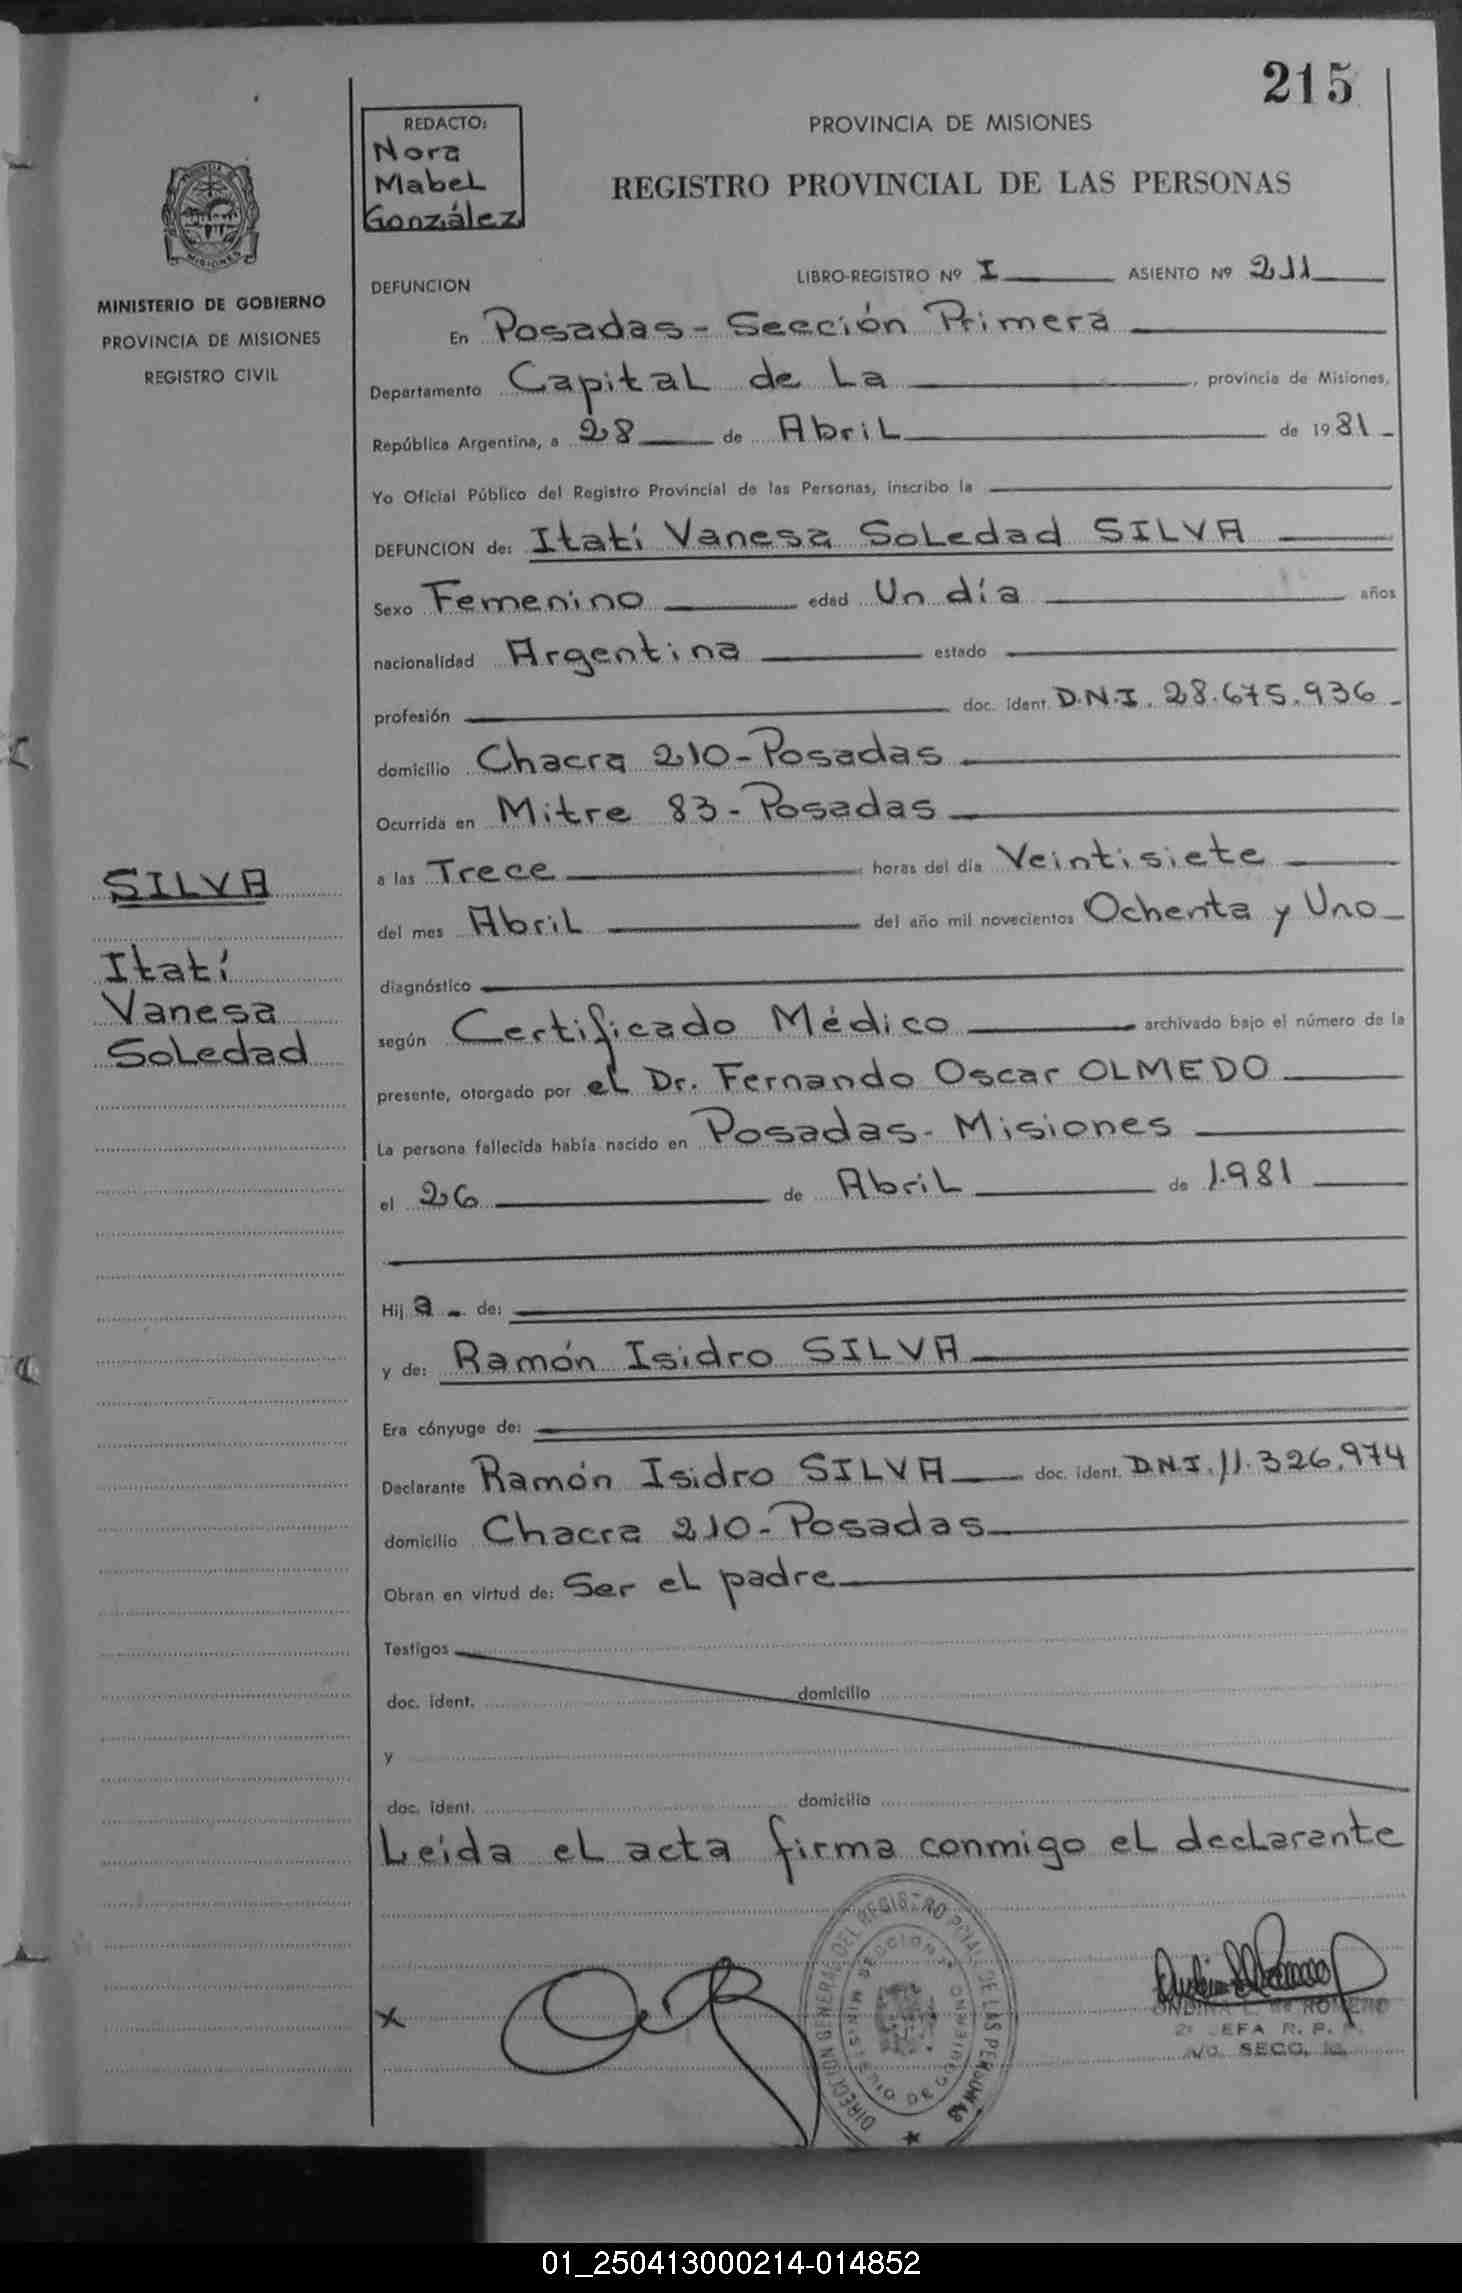 215
REDACTO:
Nora
Mabel
González
PROVINCIA DE MISIONES
REGISTRO PROVINCIAL DE LAS PERSONAS
MISIONES
MINISTERIO DE GOBIERNO
PROVINCIA DE MISIONES
REGISTRO CIVIL
DEFUNCION LIBRO-REGISTRO Nº I ASIENTO Nº 211
En Posadas - Sección Primera
Departamento Capital de La, provincia de Misiones,
República Argentina, a 28 de Abril de 1981
Yo Oficial Público del Registro Provincial de las Personas, inscribo la
DEFUNCION de: Itatí Vanesa Soledad SILVA
Sexo Femenino edad Un día años
nacionalidad Argentina estado
profesión doc. ident. D.N.I. 28.675.936
domicilio Chacra 210-Posadas
Ocurrida en Mitre 83-Posadas
a las Trece horas del día Veintisiete
del mes Abril del año mil novecientos Ochenta y Uno
diagnóstico
según Certificado Médico archivado bajo el número de la
presente, otorgado por el Dr. Fernando Oscar OLMEDO
La persona fallecida había nacido en Posadas-Misiones
el 26 de Abril de 1.981
Hija de:
y de: Ramón Isidro SILVA
Era cónyuge de:
Declarante Ramón Isidro SILVA doc. ident. D.N.I. 11.326.974
domicilio Chacra 210-Posadas
Obran en virtud de: Ser el padre
Testigos
doc. ident. domicilio
y
doc. ident. domicilio
Leída el acta firma conmigo el declarante
SILVA
Itatí
Vanesa
Soledad
x
DIRECCION GENERAL DEL REGISTRO PCIAL. DE LAS PERSONAS
MINISTERIO DE GOBIERNO
SECCION 1ª
ONDINA L. de ROMERO
2ª JEFA R. P. P.
SECC. 1ª
01_250413000214-014852